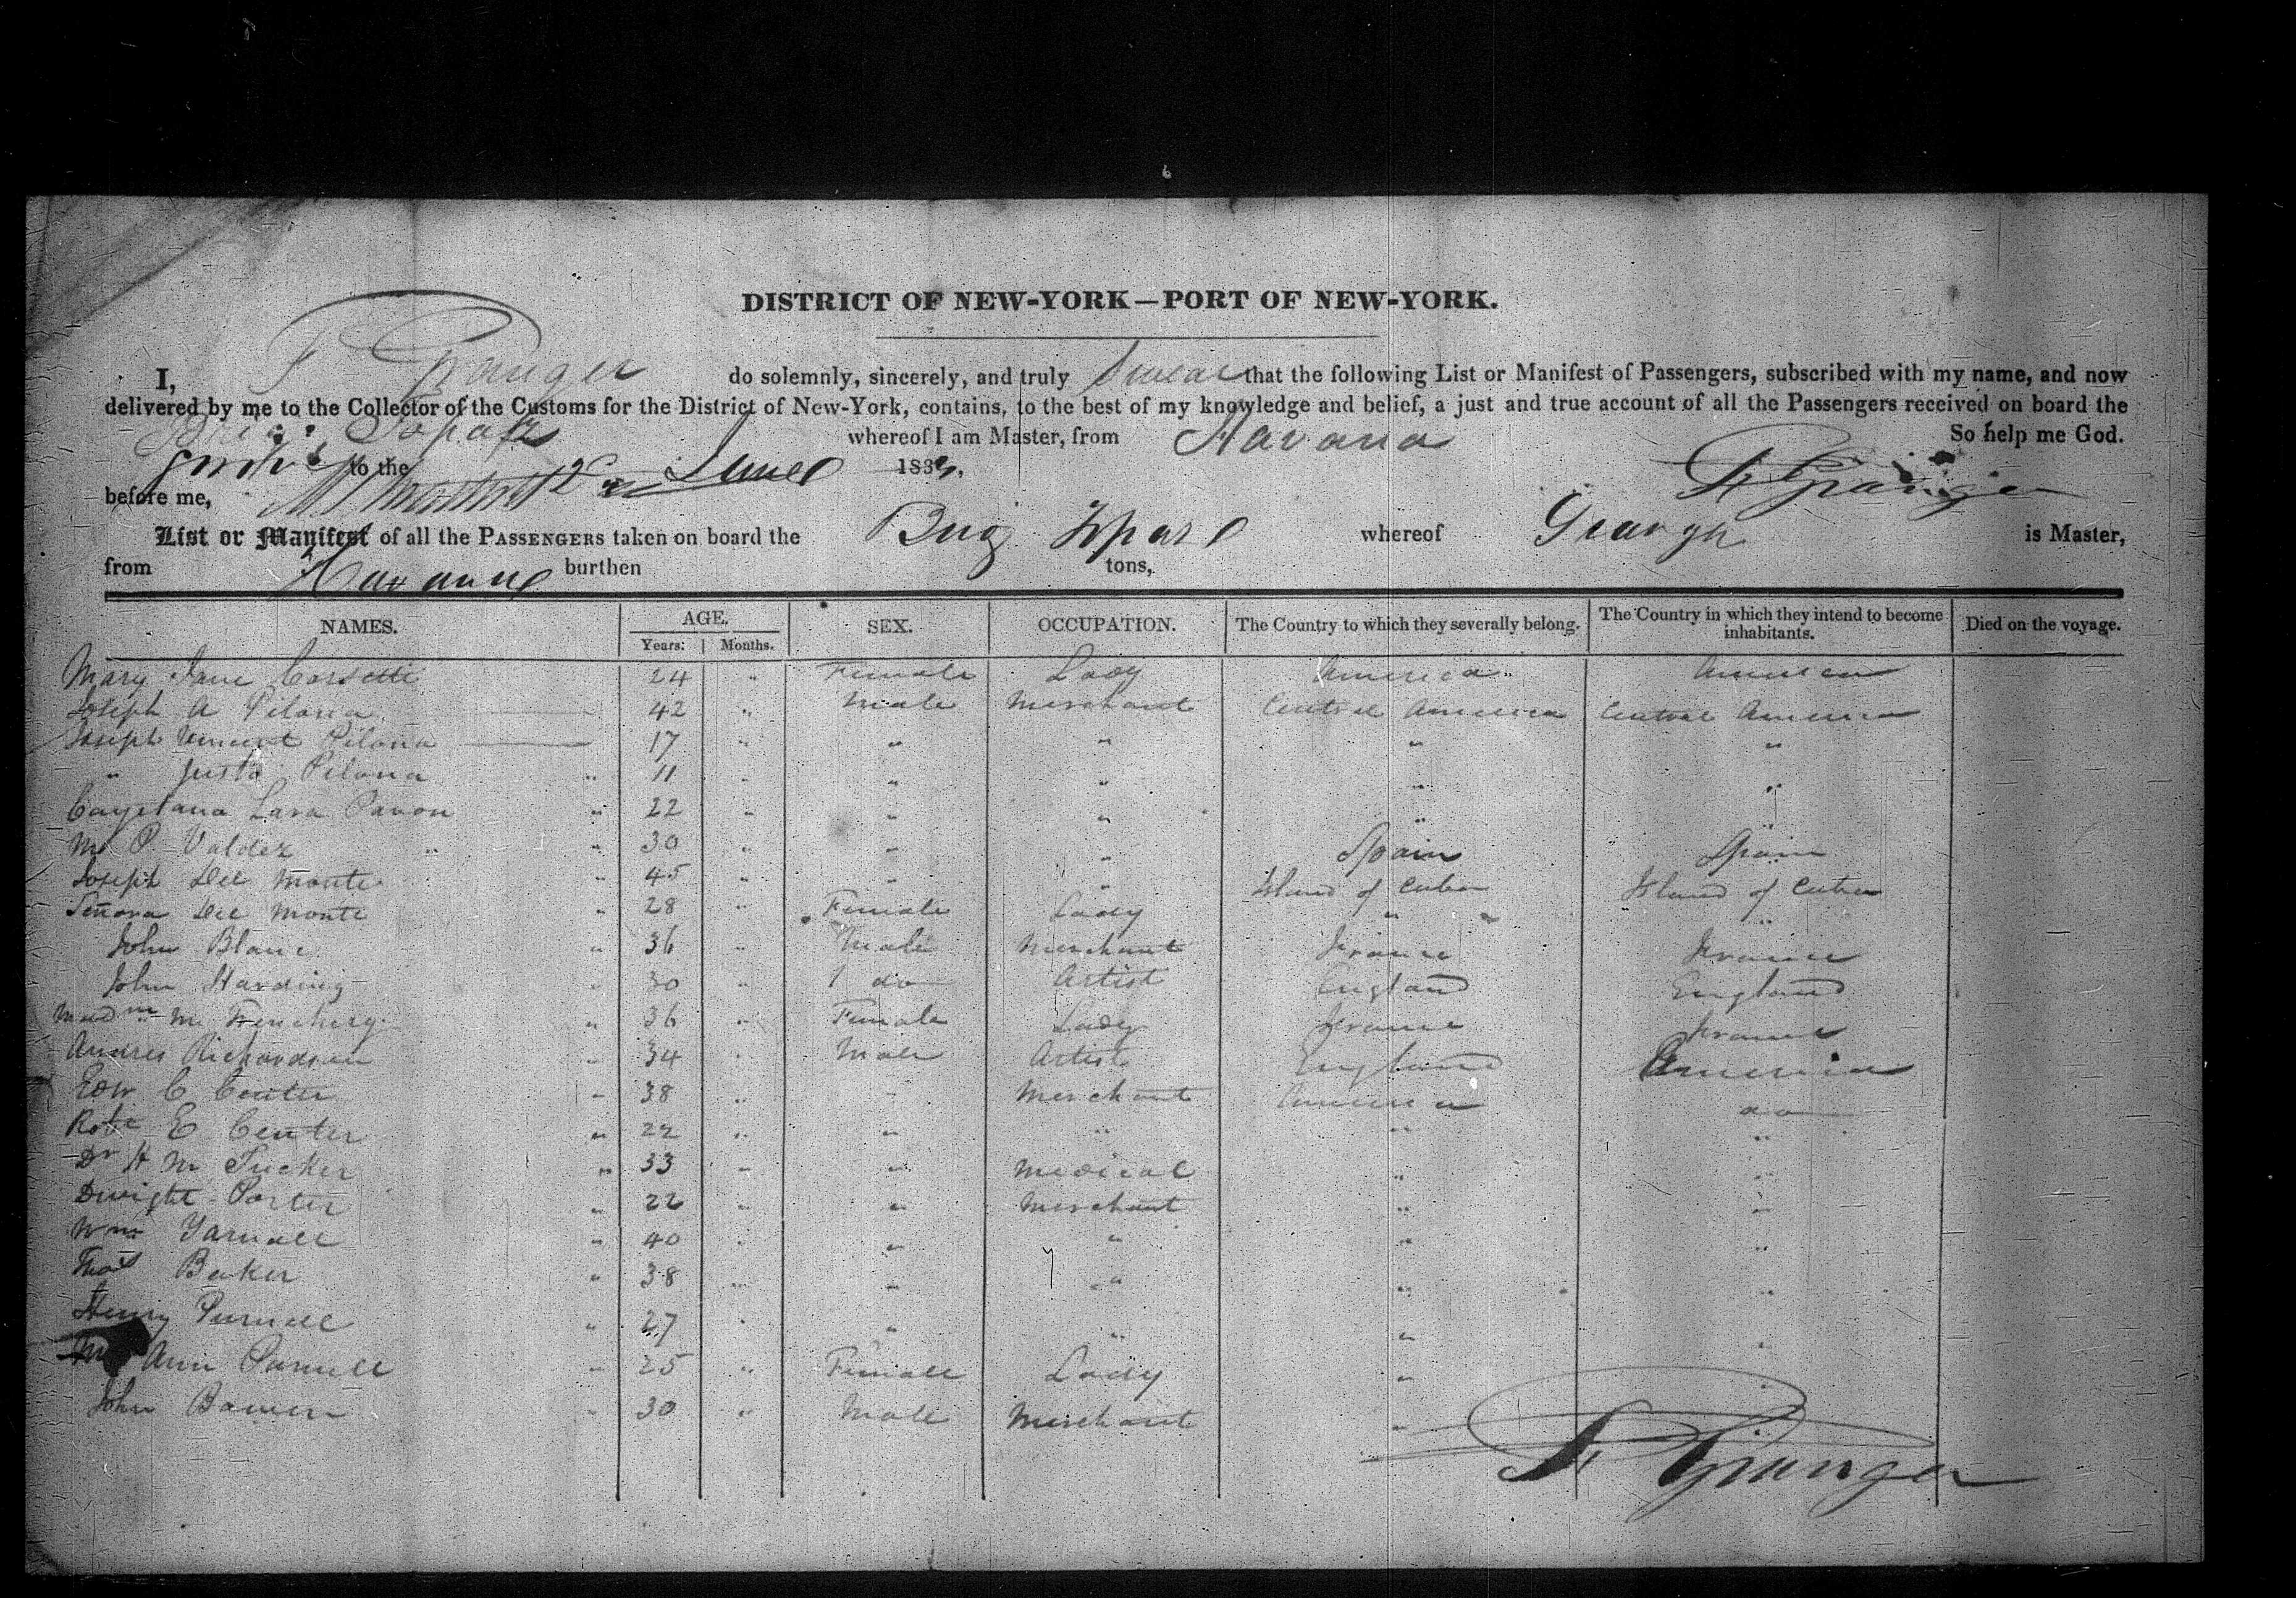 DISTRICT OF NEW-YORK—PORT OF NEW-YORK.
I, F Granger do solemnly, sincerely, and truly Swear that the following List or Manifest of Passengers, subscribed with my name, and now
delivered by me to the Collector of the Customs for the District of New-York, contains, to the best of my knowledge and belief, a just and true account of all the Passengers received on board the
Brig Topaz whereof I am Master, from Havana So help me God.
to the June 183
before me, F Granger
List or Manifest of all the PASSENGERS taken on board the Brig whereof is Master,
from Havanna burthen tons,
NAMES. AGE. SEX. OCCUPATION. The Country to which they severally belong. The Country in which they intend to become inhabitants. Died on the voyage.
Years: Months.
Mary Jane 24 " Female Lady America America
Joseph A Pilona 42 " Male Merchant Central America Central America
Joseph Vincent Pilona 17 " " " " "
" Justo Pilona " 11 " " " " "
Cayetana Lara Pavon " 22 " " " " "
M P Valdez " " 30 " " " Spain Spain
Joseph Del Monte " 45 " " " Island of Cuba Island of Cuba
Señora Del Monte " 28 " Female Lady " "
John Blanc " 36 " Male Merchant France France
John Harding " 30 " do Artist England England
Madme M " 36 " Female Lady France France
Andres Richardson " 34 " Male Artist England America
Edw C Center " 38 " " Merchant America do
Robt E Center " 22 " " " " "
Dr H M Tucker " 33 " " Medical " "
Dwight Porter " 22 " " Merchant " "
Wm Yarnall " 40 " " " " "
Thos Baker " 38 " " " " "
Henry Purnell " 27 " " " " "
Ann Purnell " 25 " Female Lady " "
John Bowen " 30 " Male Merchant "
F Granger